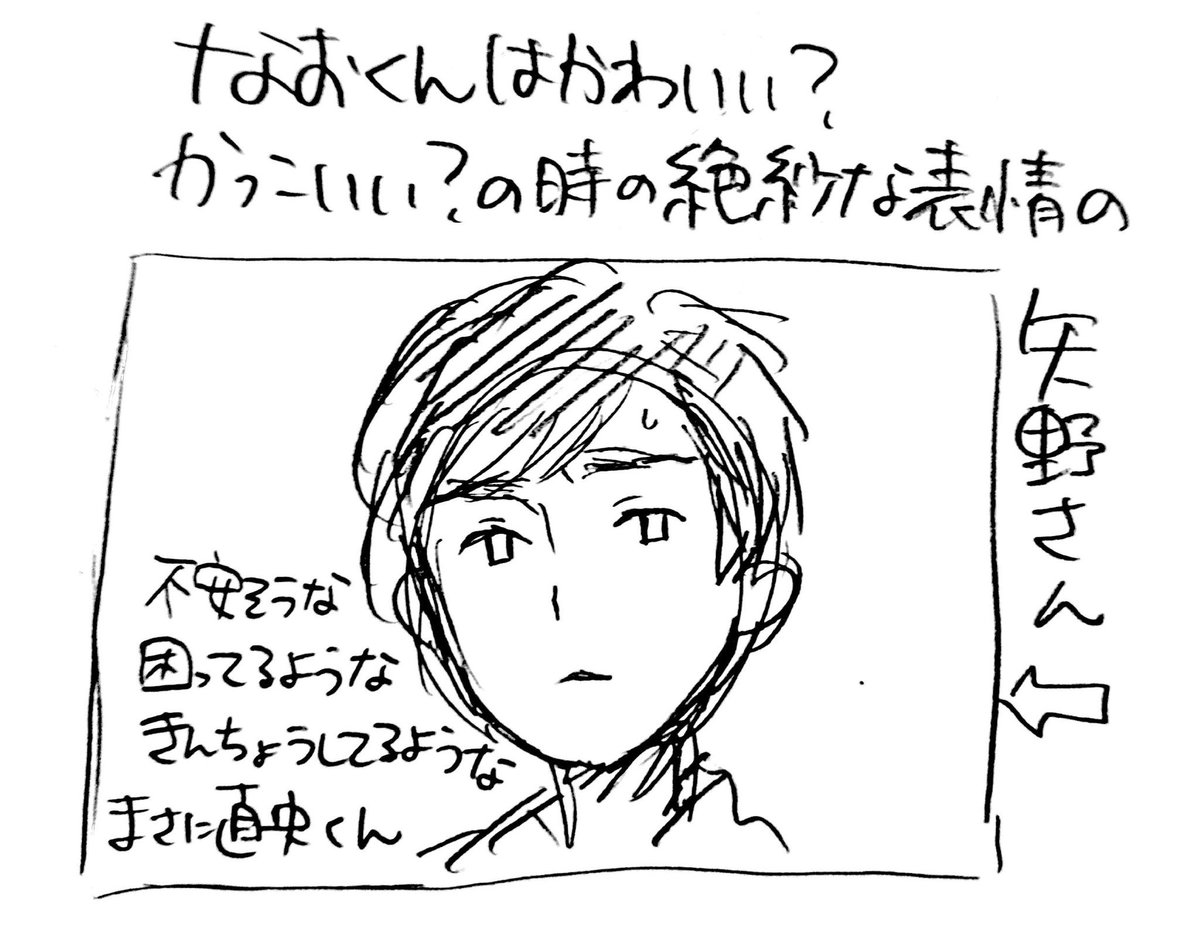 なおくんはかわいい?
かっこいい?の時の絶妙な表情の
矢野さん
不安そうな
困ってるような
きんちょうしてるような
まさに直央くん